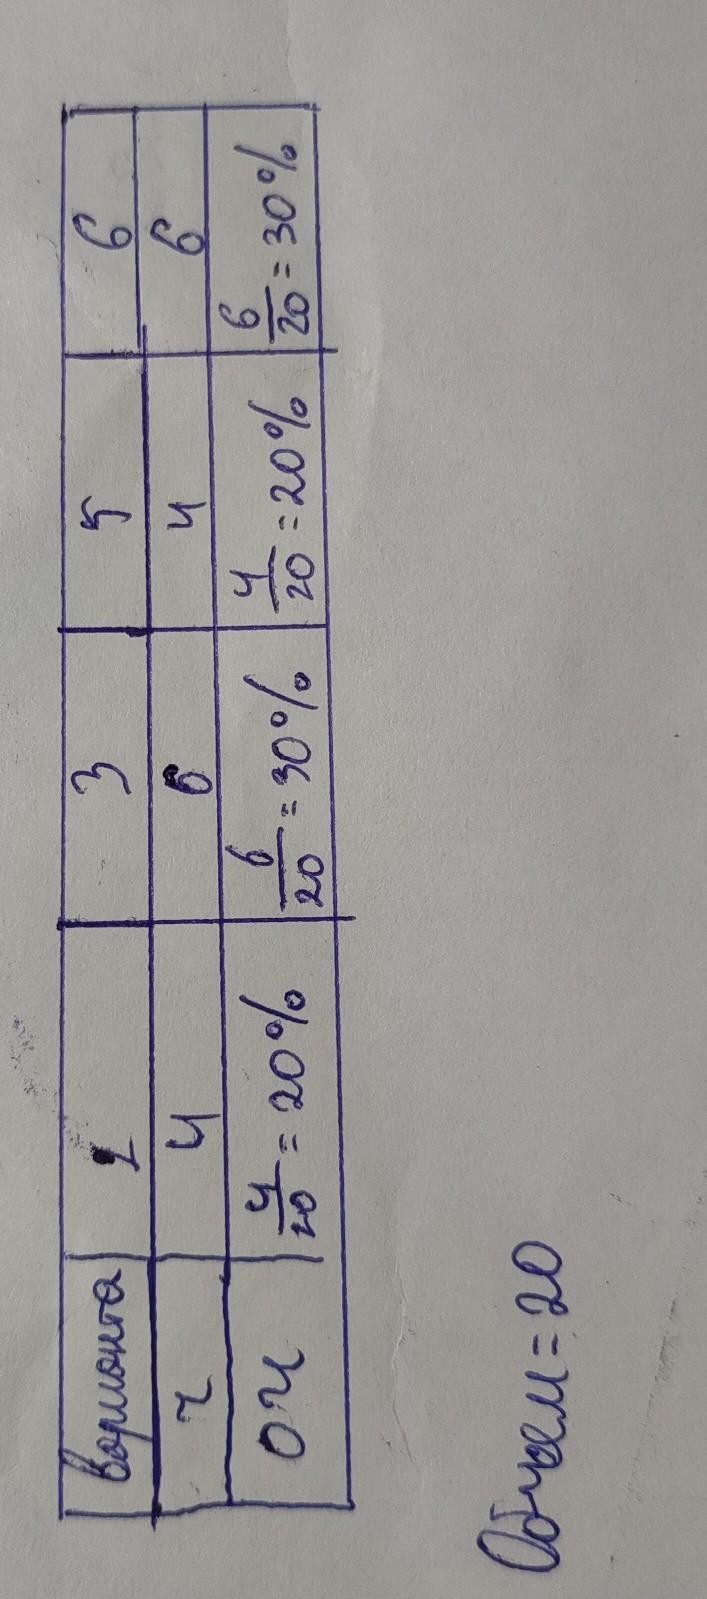 Варианта 1 3 5 6
ч 4 6 4 6
ОЧ 4/20 = 20% 6/20 = 30% 4/20 = 20% 6/20 = 30%
Объем = 20